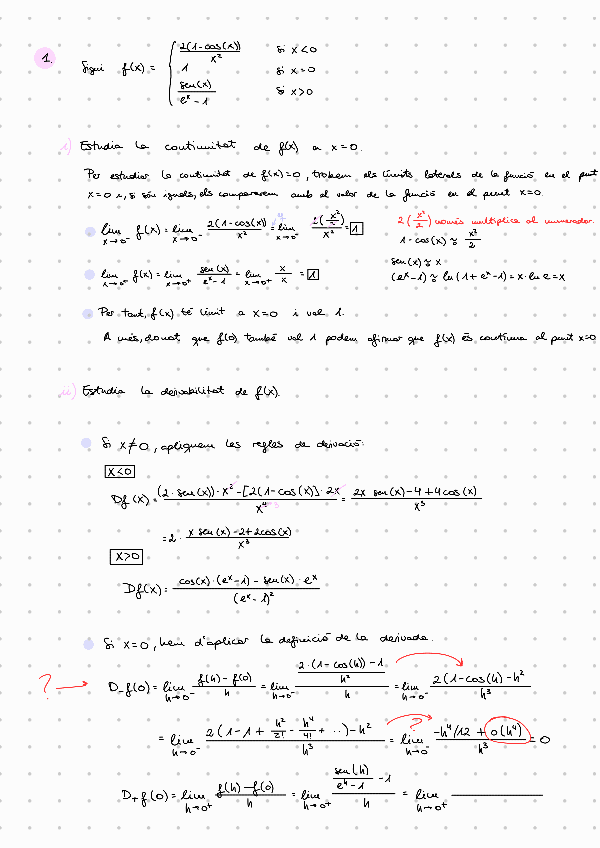 1.
Sigui f(x) = { 2(1-cos(x))/x² si x<0
1 si x=0
sen(x)/(eˣ-1) si x>0
i) Estudia la continuïtat de f(x) a x=0.
Per estudiar la continuïtat de f(x)=0, trobem els límits laterals de la funció en el punt
x=0 i, si són iguals, els comparem amb el valor de la funció en el punt x=0.
lim x→0⁻ f(x) = lim x→0⁻ 2(1-cos(x))/x² = lim x→0⁻ 2(x²/2)/x² = 1
2(x²/2) només multiplica al numerador.
1-cos(x) ≈ x²/2
lim x→0⁺ f(x) = lim x→0⁺ sen(x)/(eˣ-1) = lim x→0⁺ x/x = 1
sen(x) ≈ x
(eˣ-1) ≈ ln(1+eˣ-1) = x·ln e = x
Per tant, f(x) té límit a x=0 i val 1.
A més, donat que f(0) també val 1 podem afirmar que f(x) és contínua al punt x=0
ii) Estudia la derivabilitat de f(x).
Si x≠0, apliquem les regles de derivació:
x<0
Df(x) = ((2·sen(x))·x² - [2(1-cos(x)]·2x)/x⁴ = (2x sen(x)-4+4cos(x))/x³
= 2· (x sen(x)-2+2cos(x))/x³
x>0
Df(x) = (cos(x)·(eˣ-1) - sen(x)·eˣ)/(eˣ-1)²
Si x=0, hem d'aplicar la definició de la derivada.
? → D₋f(0) = lim h→0⁻ (f(h)-f(0))/h = lim h→0⁻ (2·(1-cos(h))-1/h²)/h = lim h→0⁻ (2(1-cos(h)-h²)/h³
= lim h→0⁻ (2(1-1+h²/2!-h⁴/4!+..)-h²)/h³ = lim h→0⁻ (-h⁴/12 + o(h⁴))/h³ = 0
?
D₊f(0) = lim h→0⁺ (f(h)-f(0))/h = lim h→0⁺ (sen(h)/(eʰ-1) -1)/h = lim h→0⁺